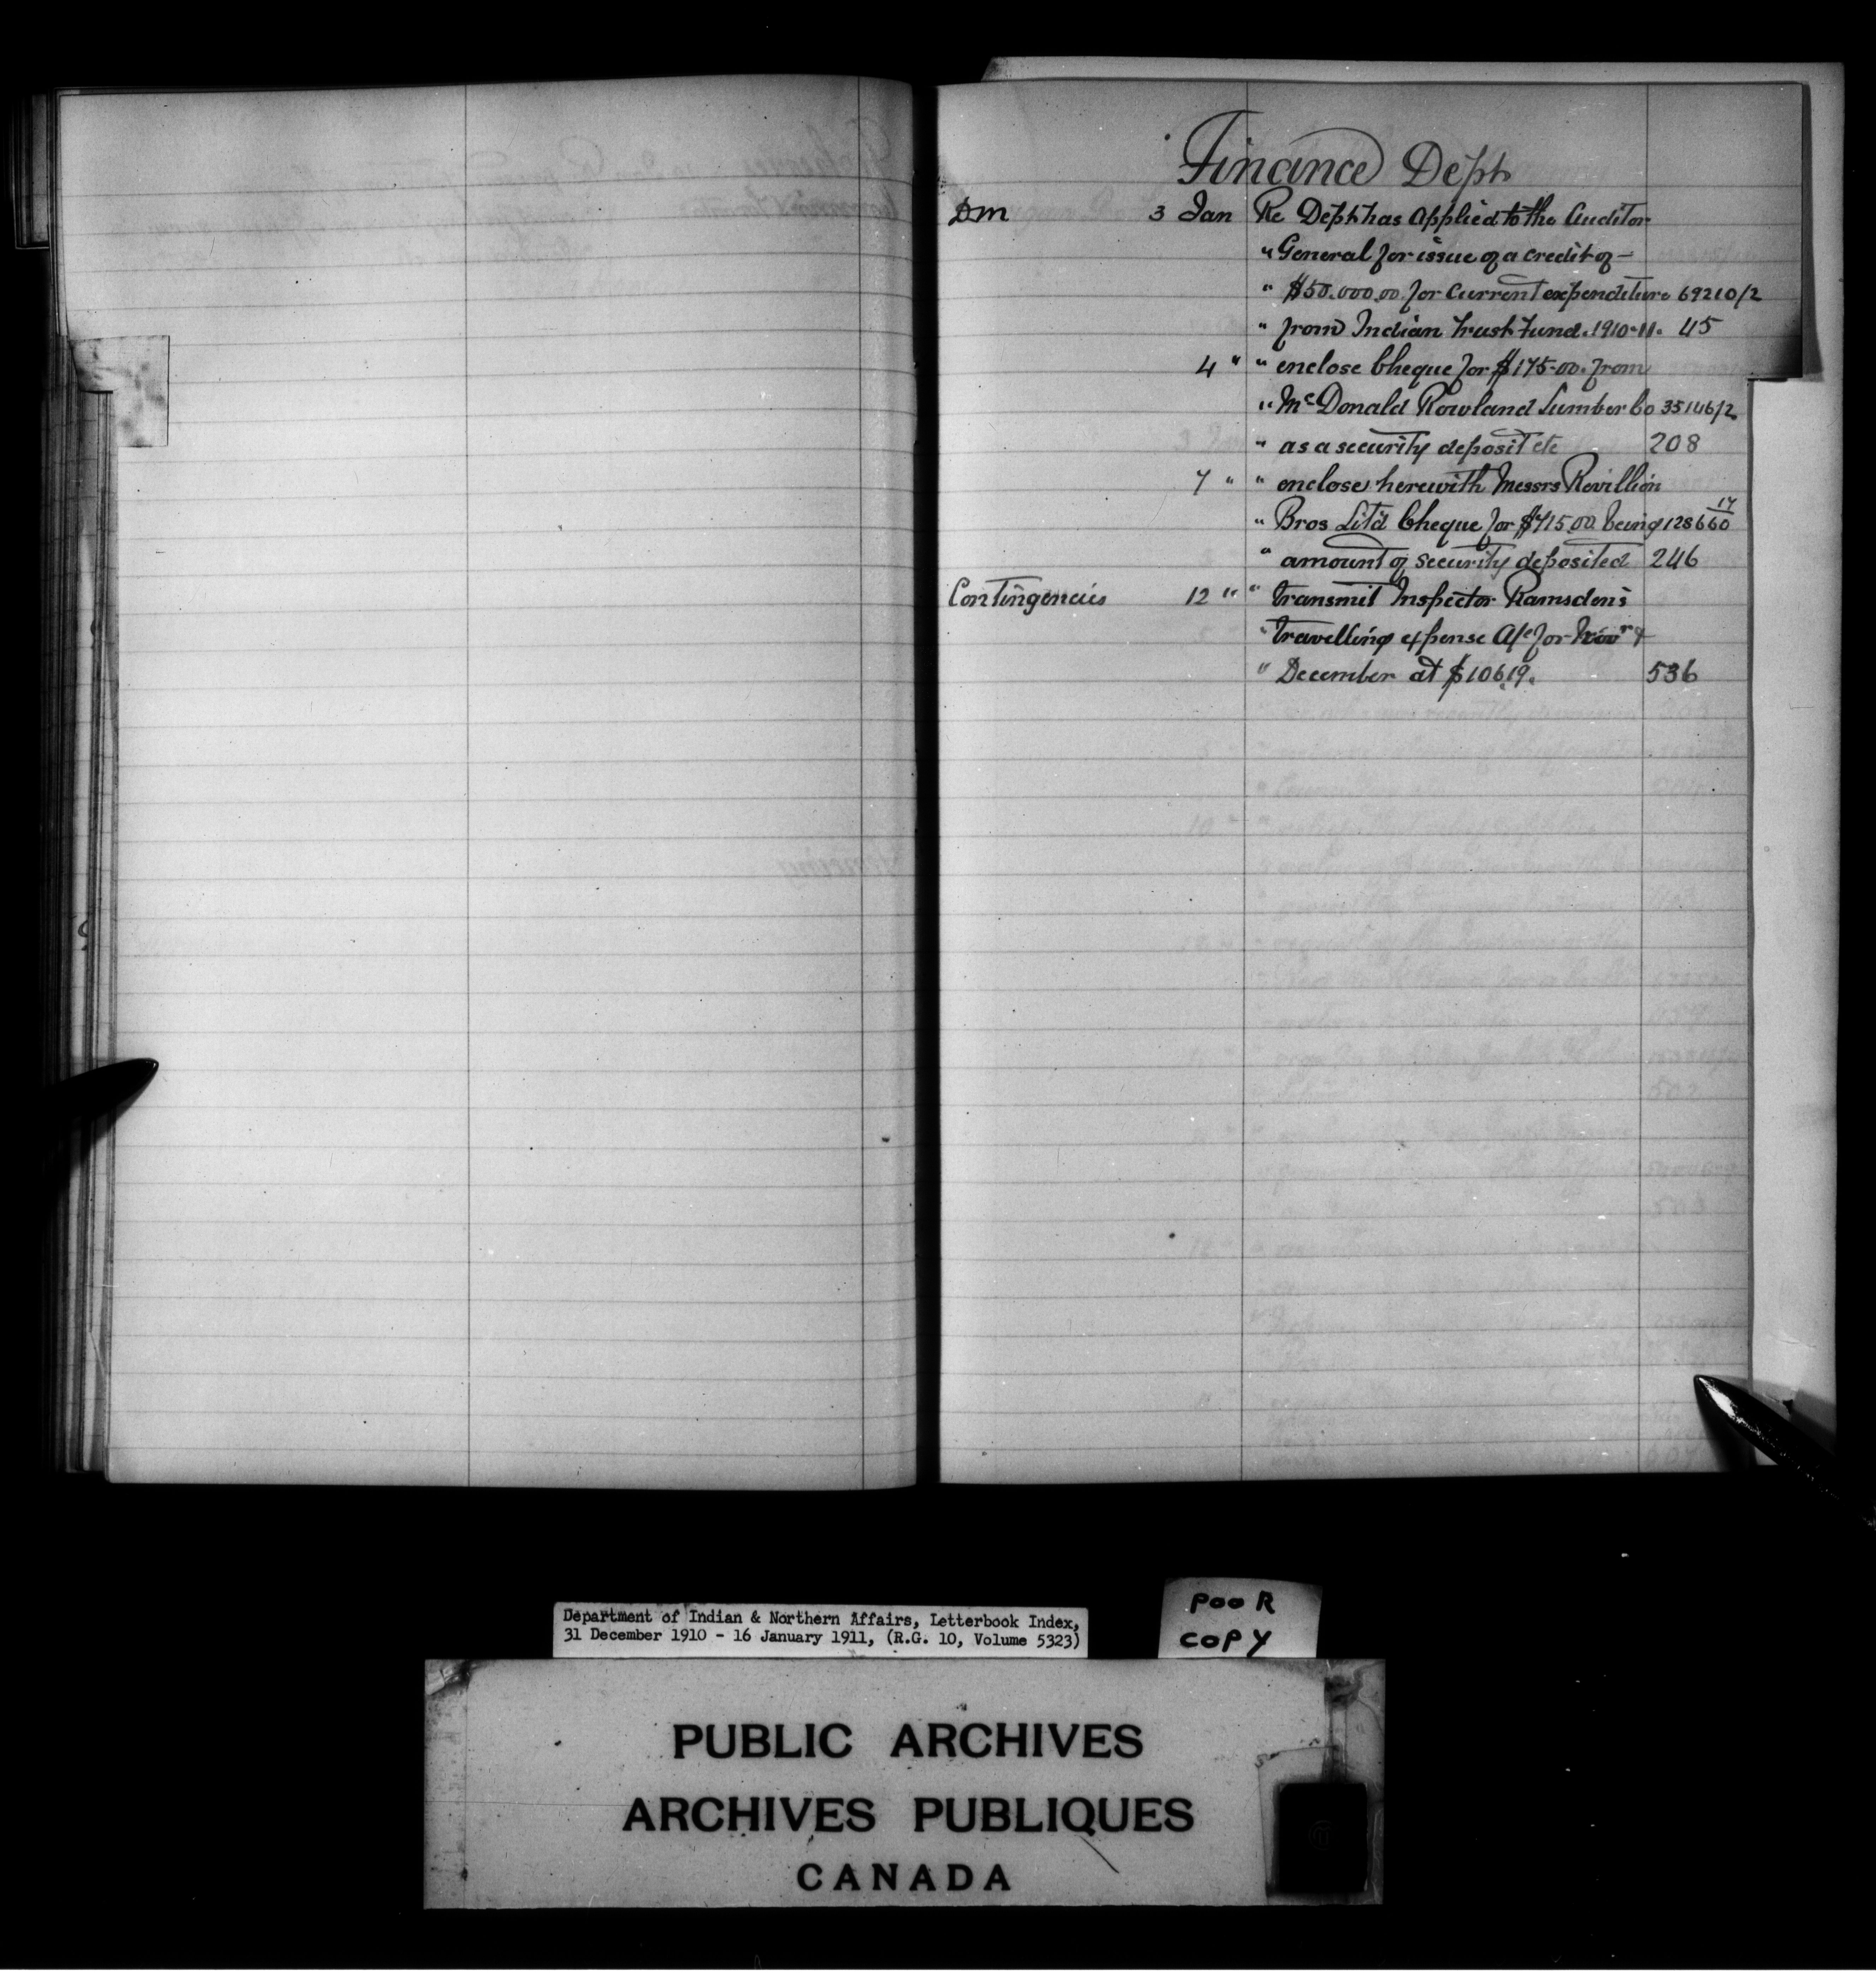 Finance Dept
DM 3 Jan Re Dept has applied to the Auditor
" General for issue of a credit of —
" $50.000.00 for current expenditure 69210/2
" from Indian Trust Fund. 1910-11. 45
4 " " enclose Cheque for $175.00. from
" McDonald Rowland Lumber Co 35146/2
" as a security deposit etc 208
7 " " enclose herewith Messrs Revillion
" Bros Lit'd Cheque for $715.00 being 128660 17
" amount of security deposited 246
Contingencies 12 " " transmit Inspector Ramsden's
" travelling expense A/c for Novr &
" December at $106.19. 536
Department of Indian & Northern Affairs, Letterbook Index,
31 December 1910 - 16 January 1911, (R.G. 10, Volume 5323)
POOR
COPY
PUBLIC ARCHIVES
ARCHIVES PUBLIQUES
CANADA